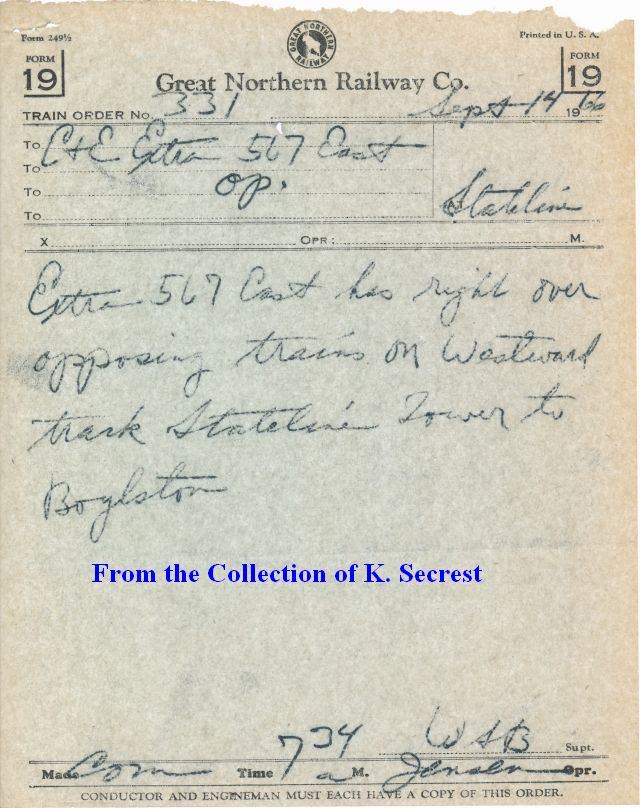 Form 249½
Printed in U. S. A.
GREAT NORTHERN RAILWAY
FORM 19
FORM 19
Great Northern Railway Co.
TRAIN ORDER No. 331 Sept 14 1960
To C&E Extra 567 East
To
To Op.
To
At Stateline
X OPR: M.
Extra 567 East has right over
opposing trains on Westward
track Stateline Tower to
Boylston
From the Collection of K. Secrest
W S B Supt.
Made Com Time 734 a M. Jensen Opr.
CONDUCTOR AND ENGINEMAN MUST EACH HAVE A COPY OF THIS ORDER.